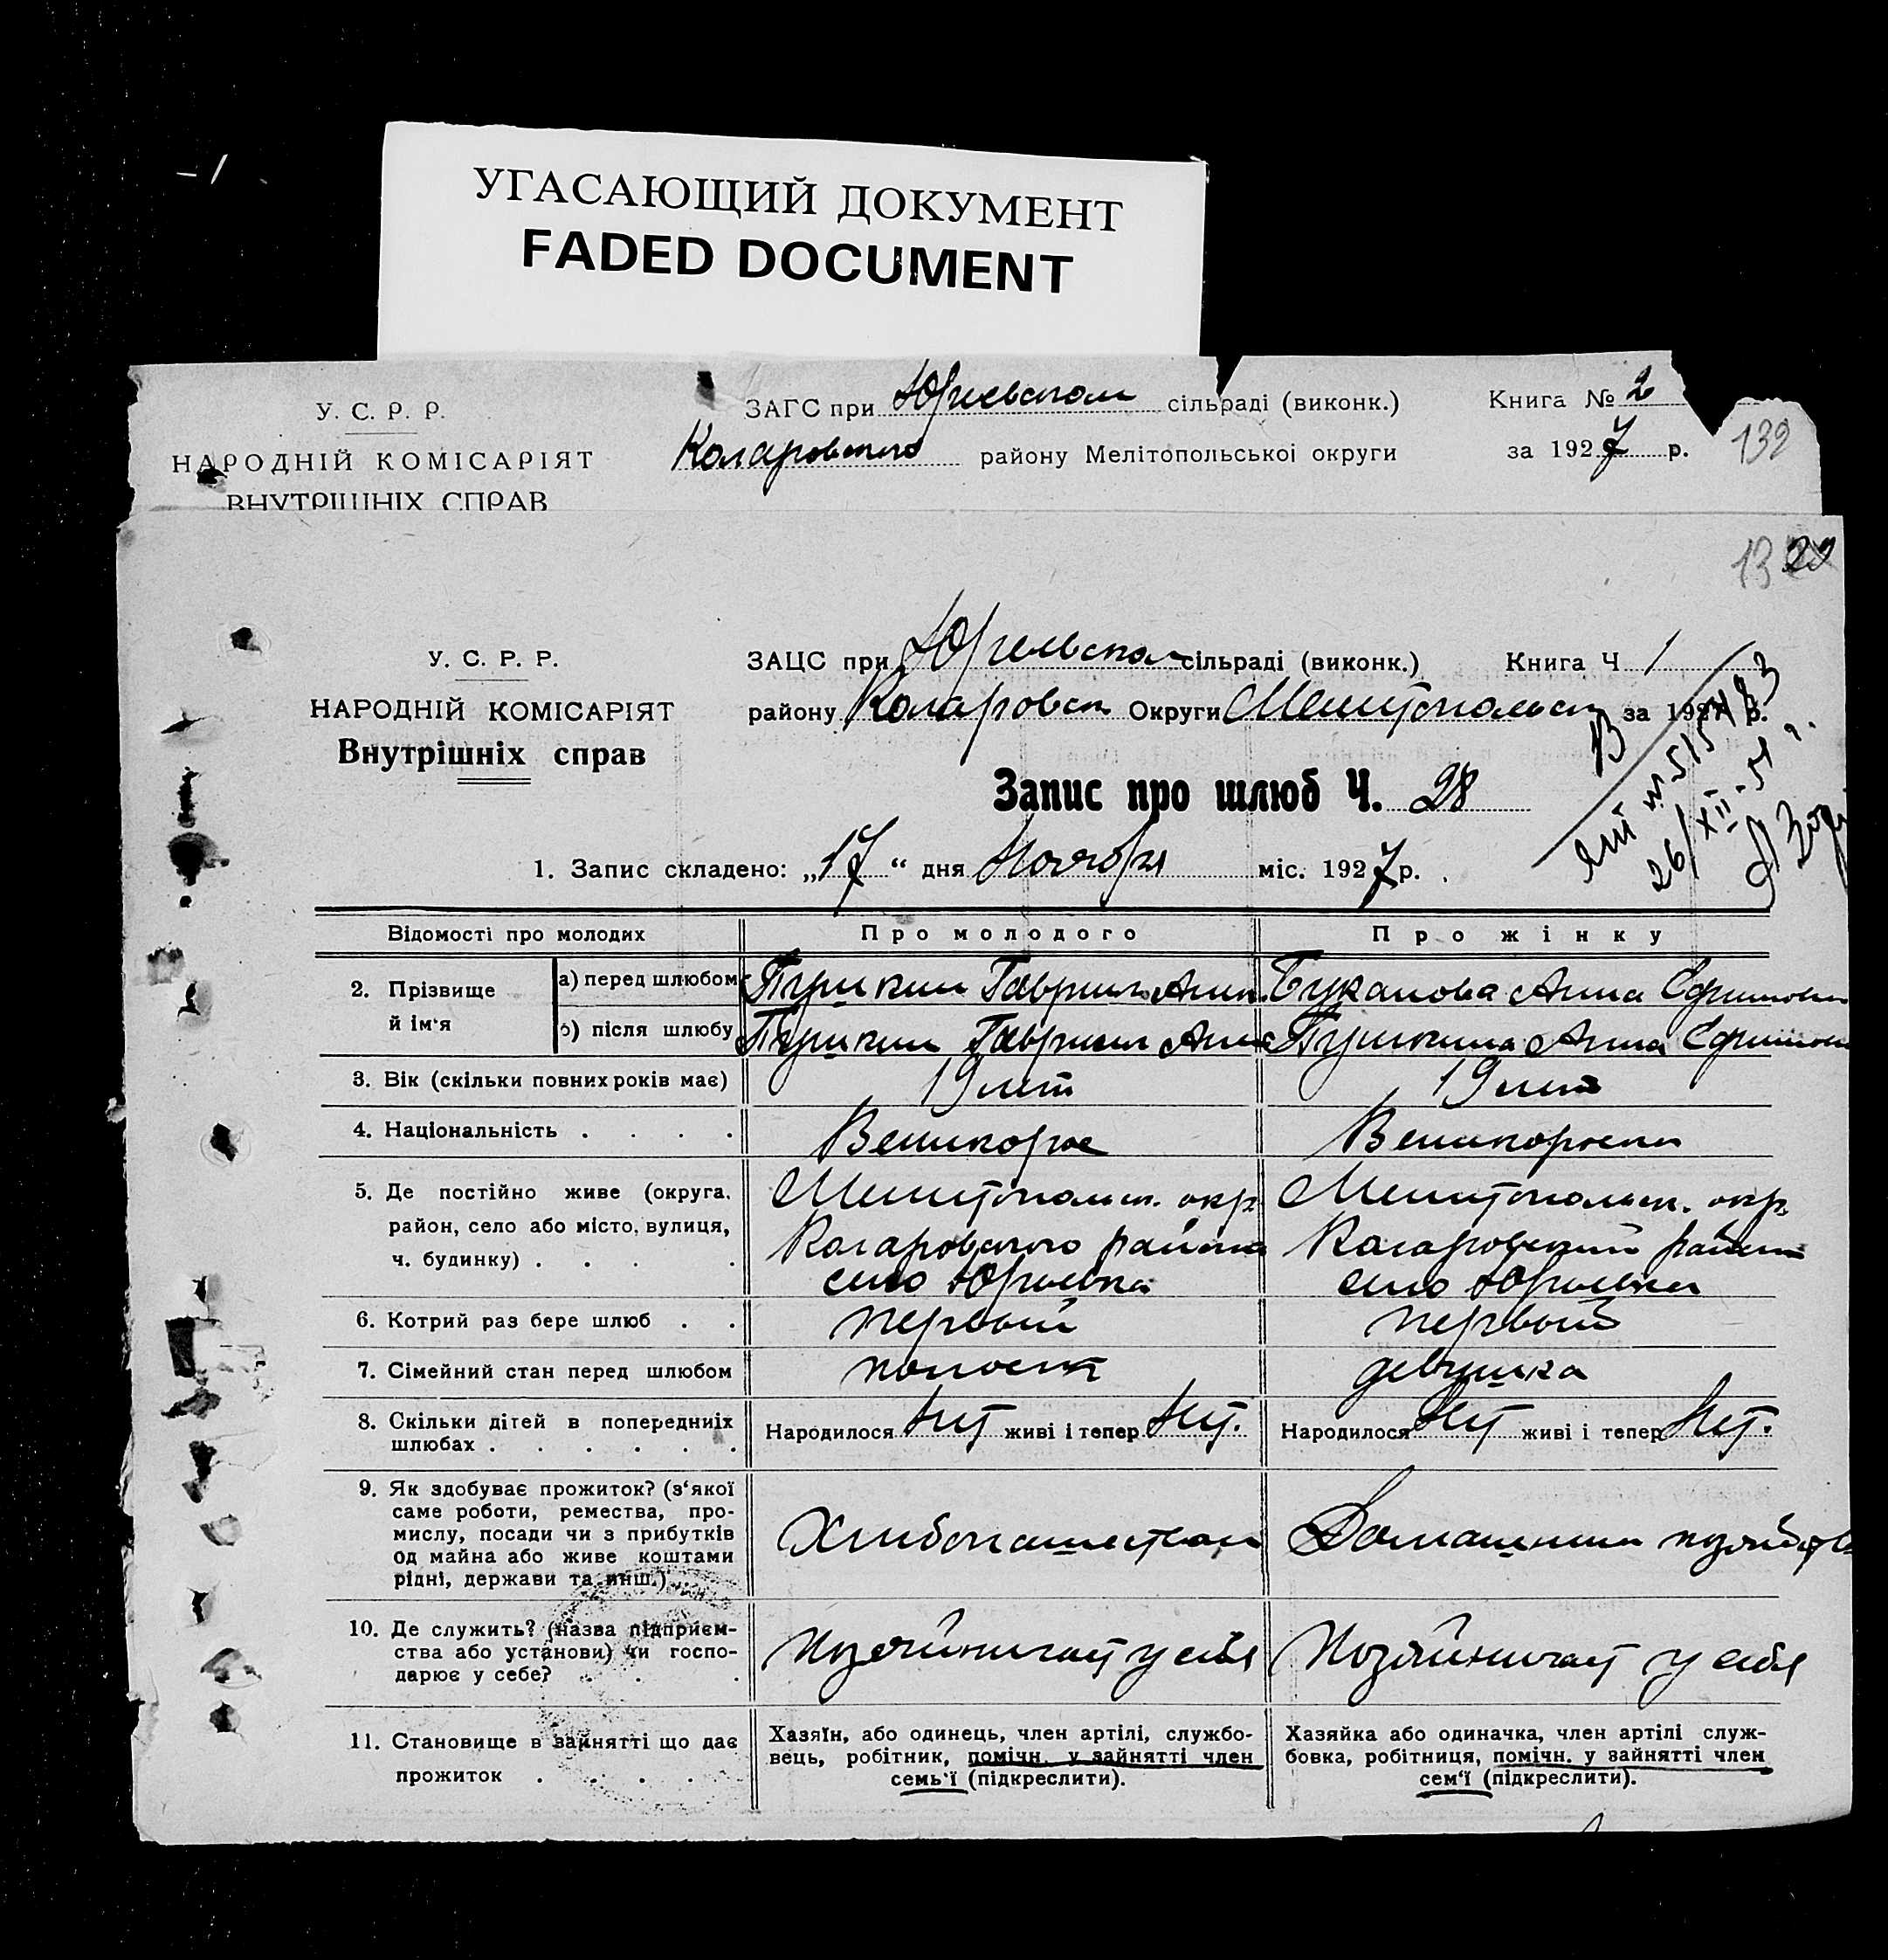 УГАСАЮЩИЙ ДОКУМЕНТ
FADED DOCUMENT
У. С. Р. Р.
НАРОДНІЙ КОМІСАРІЯТ
ВНУТРІШНІХ СПРАВ
ЗАГС при Юрьевском сільраді (виконк.)
Коларовского району Мелітопольської округи
Книга № 2
за 1927 р.
132
20
У. С. Р. Р.
НАРОДНІЙ КОМІСАРІЯТ
Внутрішніх справ
ЗАЦС при Юрьевском сільраді (виконк.) Книга Ч 1
району Коларовск Округи Мелитопольск за 1927 р.
26/XII-51 г.
Запис про шлюб Ч. 28
1. Запис складено: „17“ дня Ноября міс. 1927 р.
Відомості про молодих Про молодого Про жінку
2. Прізвище й ім‘я
а) перед шлюбом Пушкин Гавриил Буканова Анна Ефимовн
б) після шлюбу Пушкин Гавриил Пушкина Анна Ефимовн
3. Вік (скільки повних років має) 19 лет 19 лет
4. Національність . . . . Великорос Великороска
5. Де постійно живе (округа,
район, село або місто, вулиця,
ч. будинку) . . . .
Мелитопольск. окр.
Коларовского района
село Юрьевка
Мелитопольск. окр.
Коларовский район
село Юрьевка
6. Котрий раз бере шлюб . . первый первый
7. Сімейний стан перед шлюбом холост девушка
8. Скільки дітей в попередниіх
шлюбах . . . . . .
Народилося Нет живі і тепер Нет.
Народилося Нет живі і тепер Нет.
9. Як здобуває прожиток? (з‘якої
саме роботи, ремества, про-
мислу, посади чи з прибутків
од майна або живе коштами
рідні, держави та инш.) .
Хлебопашеством
Домашним хозяйств
10. Де служить? (назва підприєм-
ства або установи) чи госпо-
дарює у себе? . . .
Хозяйничает у себя
Хозяйничает у себя
11. Становище в зайнятті що дає
прожиток . . . .
Хазяїн, або одинець, член артілі, службо-
вець, робітник, помічн. у зайнятті член
семь‘ї (підкреслити).
Хазяйка або одиначка, член артілі служ-
бовка, робітниця, помічн. у зайнятті член
сем‘ї (підкреслити).